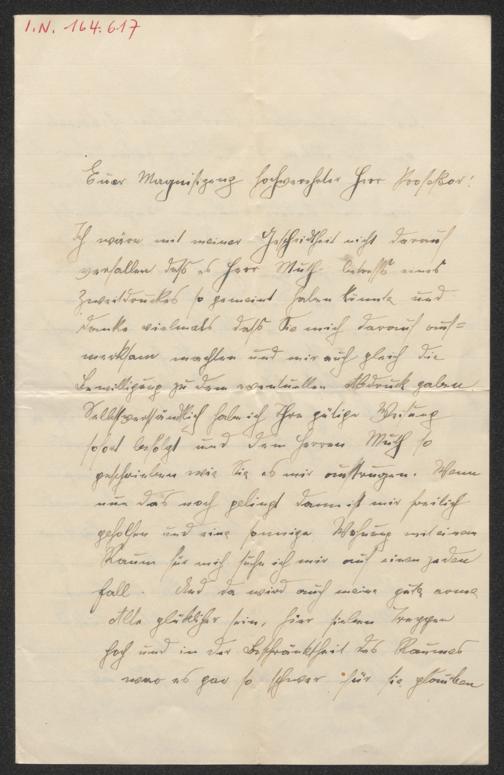 I.N. 164.617
Euer Magnifizenz hochverehrter Herr Professor!
Ich wäre mit meiner Gescheidtheit nicht darauf
verfallen daß es Herr Muth betreffs eines
Zweitdruckes so gemeint haben könnte und
danke vielmals daß Sie mich darauf auf=
merksam machten und mir auch gleich die
Bewilligung zu dem eventuellen Abdruck gaben
Selbstverständlich habe ich Ihre gütige Weisung
sofort befolgt und dem Herren Muth so
geschrieben wie Sie es mir auftrugen. Wenn
nun das noch gelingt dann ist mir freilich
geholfen und eine sonnige Wohnung mit einem
Raum für mich suche ich mir auf einen jeden
Fall. Und da wird auch meine gute arme
Alte glücklicher sein, hier sieben Treppen
hoch und in der Beschränktheit des Raumes
war es gar so schwer für sie glauben